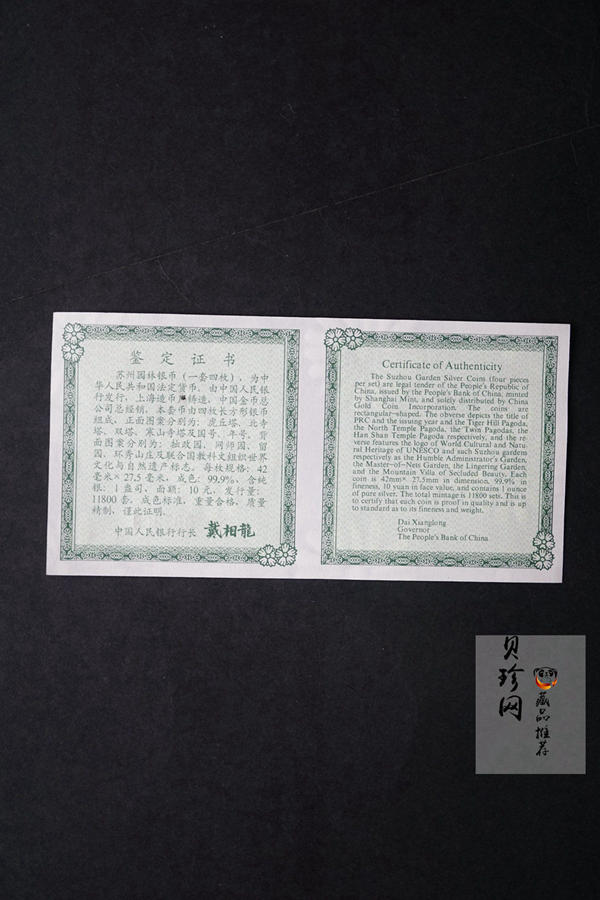 鉴定证书
苏州园林银币(一套四枚),为中
华人民共和国法定货币,由中国人民银
行发行,上海造币厂铸造,中国金币总
公司总经销。本套币由四枚长方形银币
组成,正面图案分别为:虎丘塔、北寺
塔、双塔、寒山寺塔及国号、年号,背
面图案分别为:拙政园、网师园、留
园、环秀山庄及联合国教科文组织世界
文化与自然遗产标志。每枚规格:42
毫米×27.5毫米,成色:99.9%,含纯
银:1盎司,面额:10元,发行量:
11800套。成色标准,重量合格,质量
精制,谨此证明。
中国人民银行行长 戴相龍
Certificate of Authenticity
The Suzhou Garden Silver Coins (four pieces
per set) are legal tender of the People's Republic of
China, issued by the People's Bank of China, minted
by Shanghai Mint, and solely distributed by China
Gold Coin Incorporation. The coins are
rectangular-shaped. The obverse depicts the title of
PRC and the issuing year and the Tiger Hill Pagoda,
the North Temple Pagoda, the Twin Pagodas, the
Han Shan Temple Pagoda respectively, and the re-
verse features the logo of World Cultural and Natu-
ral Heritage of UNESCO and such Suzhou gardens
respectively as the Humble Administrator's Garden,
the Master-of-Nets Garden, the Lingering Garden,
and the Mountain Villa of Secluded Beauty. Each
coin is 42mm× 27.5mm in dimension, 99.9% in
fineness, 10 yuan in face value, and contains 1 ounce
of pure silver. The total mintage is 11800 sets. This is
to certify that each coin is proof in quality and is up
to standard as to its fineness and weight.
Dai Xianglong
Governor
The People's Bank of China
贝珍网
藏品推荐